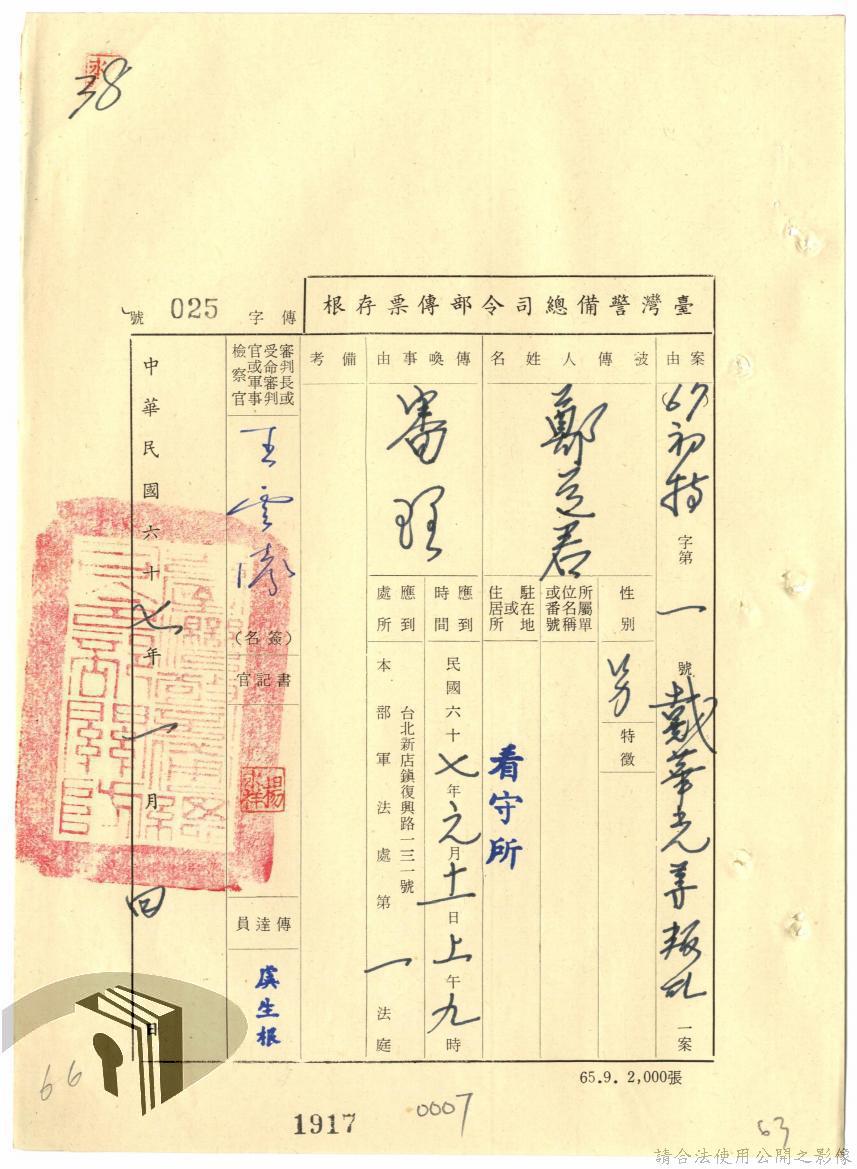 38
臺灣警備總司令部傳票存根
傳字 025 號
案由
(67)初特字第一號戴華光等叛亂一案
被傳人姓名
鄭道君
性別
男
特徵
所屬單位名稱或番號
駐在地或住居所
看守所
傳喚事由
審理
應到時間
民國六十七年元月十一日上午九時
應到處所
台北新店鎮復興路一三一號
本部軍法處第一法庭
備考
審判長或受命審判官或軍事檢察官
王雲濤
(簽名)
書記官
楊永祥
傳達員
虞生根
中華民國六十七年一月四日
65.9. 2,000張
66
1917
0007
63
請合法使用公開之影像